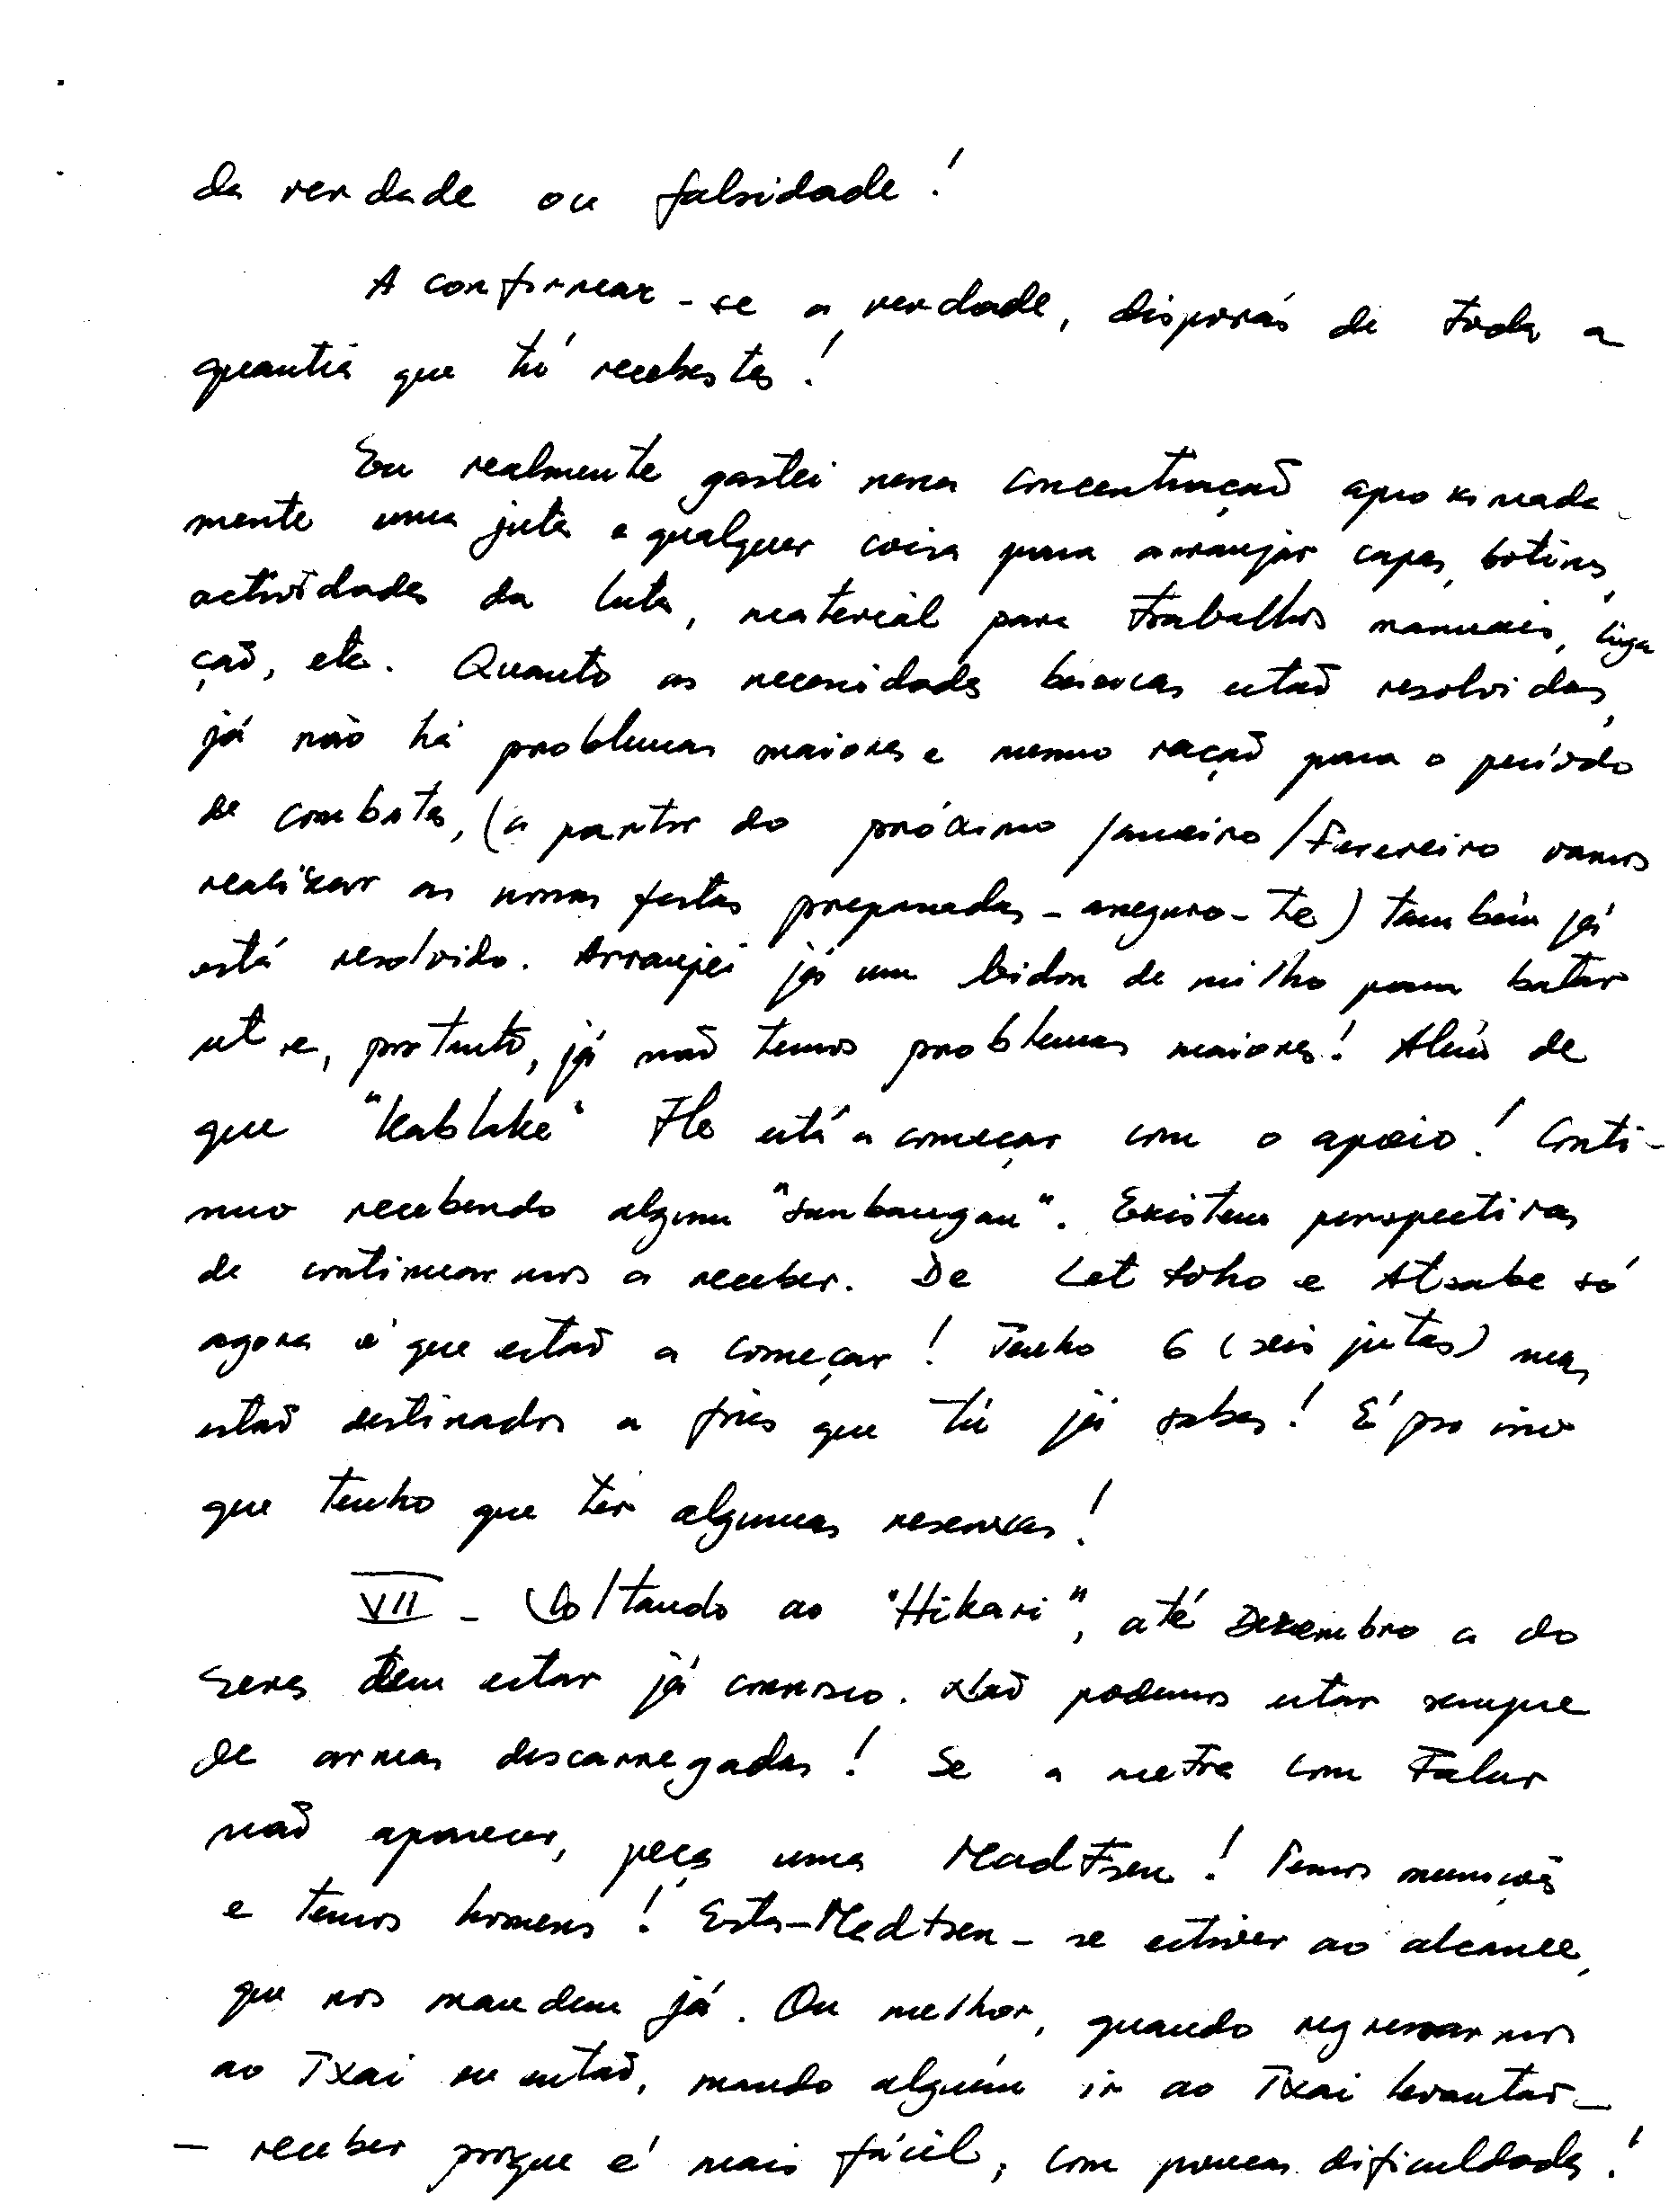 da verdade ou falsidade!
A confirmar-se a verdade, disporás de toda a
quantia que tú recebestes!
Eu realmente gastei nena concentração aproximada-
mente uma juta e qualquer coisa para arranjar capas, botins,
actividades da luta, material para trabalhos manuais, liga
ção, etc. Quanto as necessidades básicas estão resolvidas,
já não há problemas maiores e mesmo ração para o período
de combates, (a partir do próximo Janeiro/Fevereiro vamos
realizar as nossas festas preparadas - asseguro-te) também já
está resolvido. Arranjei já um bidon de milho para batar
ut e, portanto, já não temos problemas maiores! Além de
que "Kablake" Flo está a começar com o apoio! Conti-
nuo recebendo algum "sumbangan". Existem perspectivas
de continuarmos a receber. De Letfoho e Atsabe só
agora é que estão a começar! Tenho 6 (seis jutas) mas
estão destinados a fins que tú já sabes! É por isso
que tenho que ter algumas reservas!
VII - Voltando ao "Hikari", até Dezembro a do
Seres tem estar já connosco. Não podemos estar sempre
de armas descarregadas! Se a metra com Falur
não aparecer, peça uma Madtsen! Temos munições
e temos homens! Esta-Madtsen- se estiver ao alcance,
que nos mandem já. Ou melhor, quando regressarmos
ao Txai ou então, mando alguém ir ao Txai levantar-
- receber porque é mais fácil, com poucas dificuldades!